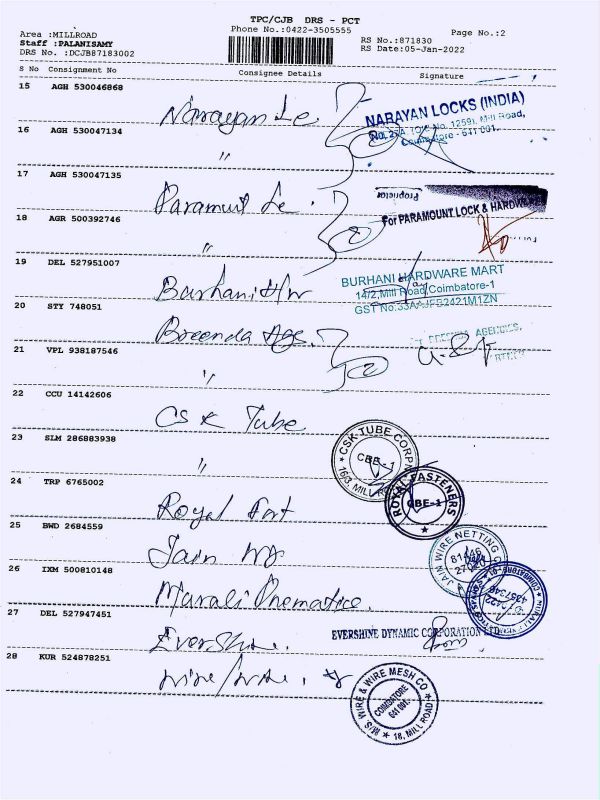 TPC/CJB DRS - PCT
Area :MILLROAD
Phone No.:0422-3505555
Page No.:2
Staff :PALANISAMY
RS No.:871830
DRS No. :DCJB87183002
RS Date:05-Jan-2022
S No Consignment No Consignee Details Signature
15 AGH 530046868
Narayan Le
NARAYAN LOCKS (INDIA)
Mill Road,
Coimbatore - 641 001.
16 AGH 530047134
"
17 AGH 530047135
Paramut Le
Proprietor
For PARAMOUNT LOCK & HARDWARE
18 AGR 500392746
"
19 DEL 527951007
Burhani H/w
BURHANI HARDWARE MART
14/2,Mill Road,Coimbatore-1
GST No:33AAJFB2421M1ZN
20 STY 748051
Breenda Ags.
AGENCIES,
21 VPL 938187546
"
22 CCU 14142606
CSK Tube
CSK TUBE CORP
CBE-1
16/3, MILL
23 SLM 286883938
"
24 TRP 6765002
Royal Fast
ROYAL FASTENERS
CBE-1
25 BWD 2684559
Jain
JAIN WIRE NETTING
26 IXM 500810148
Murali
27 DEL 527947451
Evershine.
EVERSHINE DYNAMIC CORPORATION LTD
28 KUR 524878251
wire/wire.
M/S. WIRE & WIRE MESH CO
COIMBATORE
641 001.
18, MILL ROAD